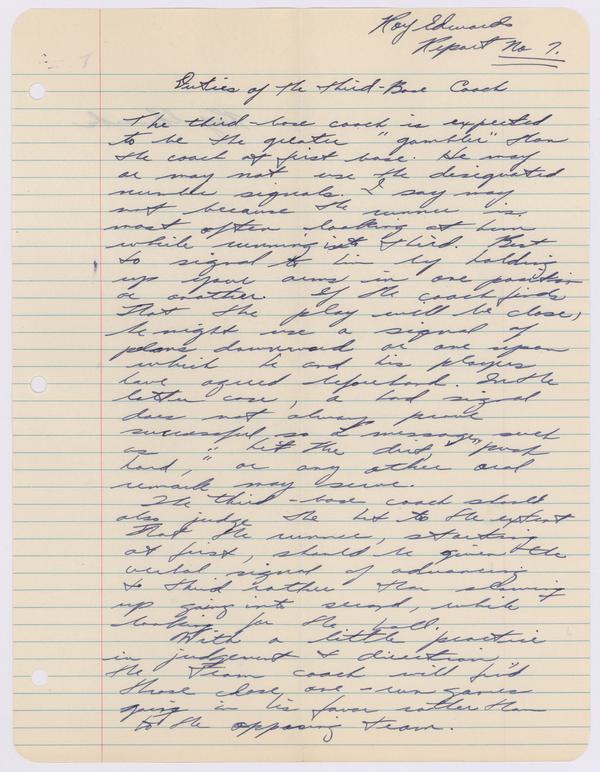 Roy Edwards
Report No 7.
Duties of the third-Base Coach
The third-base coach is expected
to be the greater "gambler" than
the coach at first base. He may
or may not use the designated
number signals. I say may
not because the runner is
most often looking at him
while running into third. Best
to signal to him by holding
up your arms in one position
or another. If the coach finds
that the play will be close,
he might use a signal of
palms downward or one upon
which he and his players
have agreed beforehand. In the
latter case, a hand signal
does not always prove
successful, so a message, such
as "hit the dirt," "push
hard," or any other oral
remark may serve.
The third-base coach should
also judge the hit to the extent
that the runner, starting
at first, should be given the
verbal signal of advancing
to third rather than slowing
up going into second, while
looking for the ball.
With a little practice
in judgement & direction,
the team coach will find
those close, one-run games
going in his favor rather than
to the opposing team.